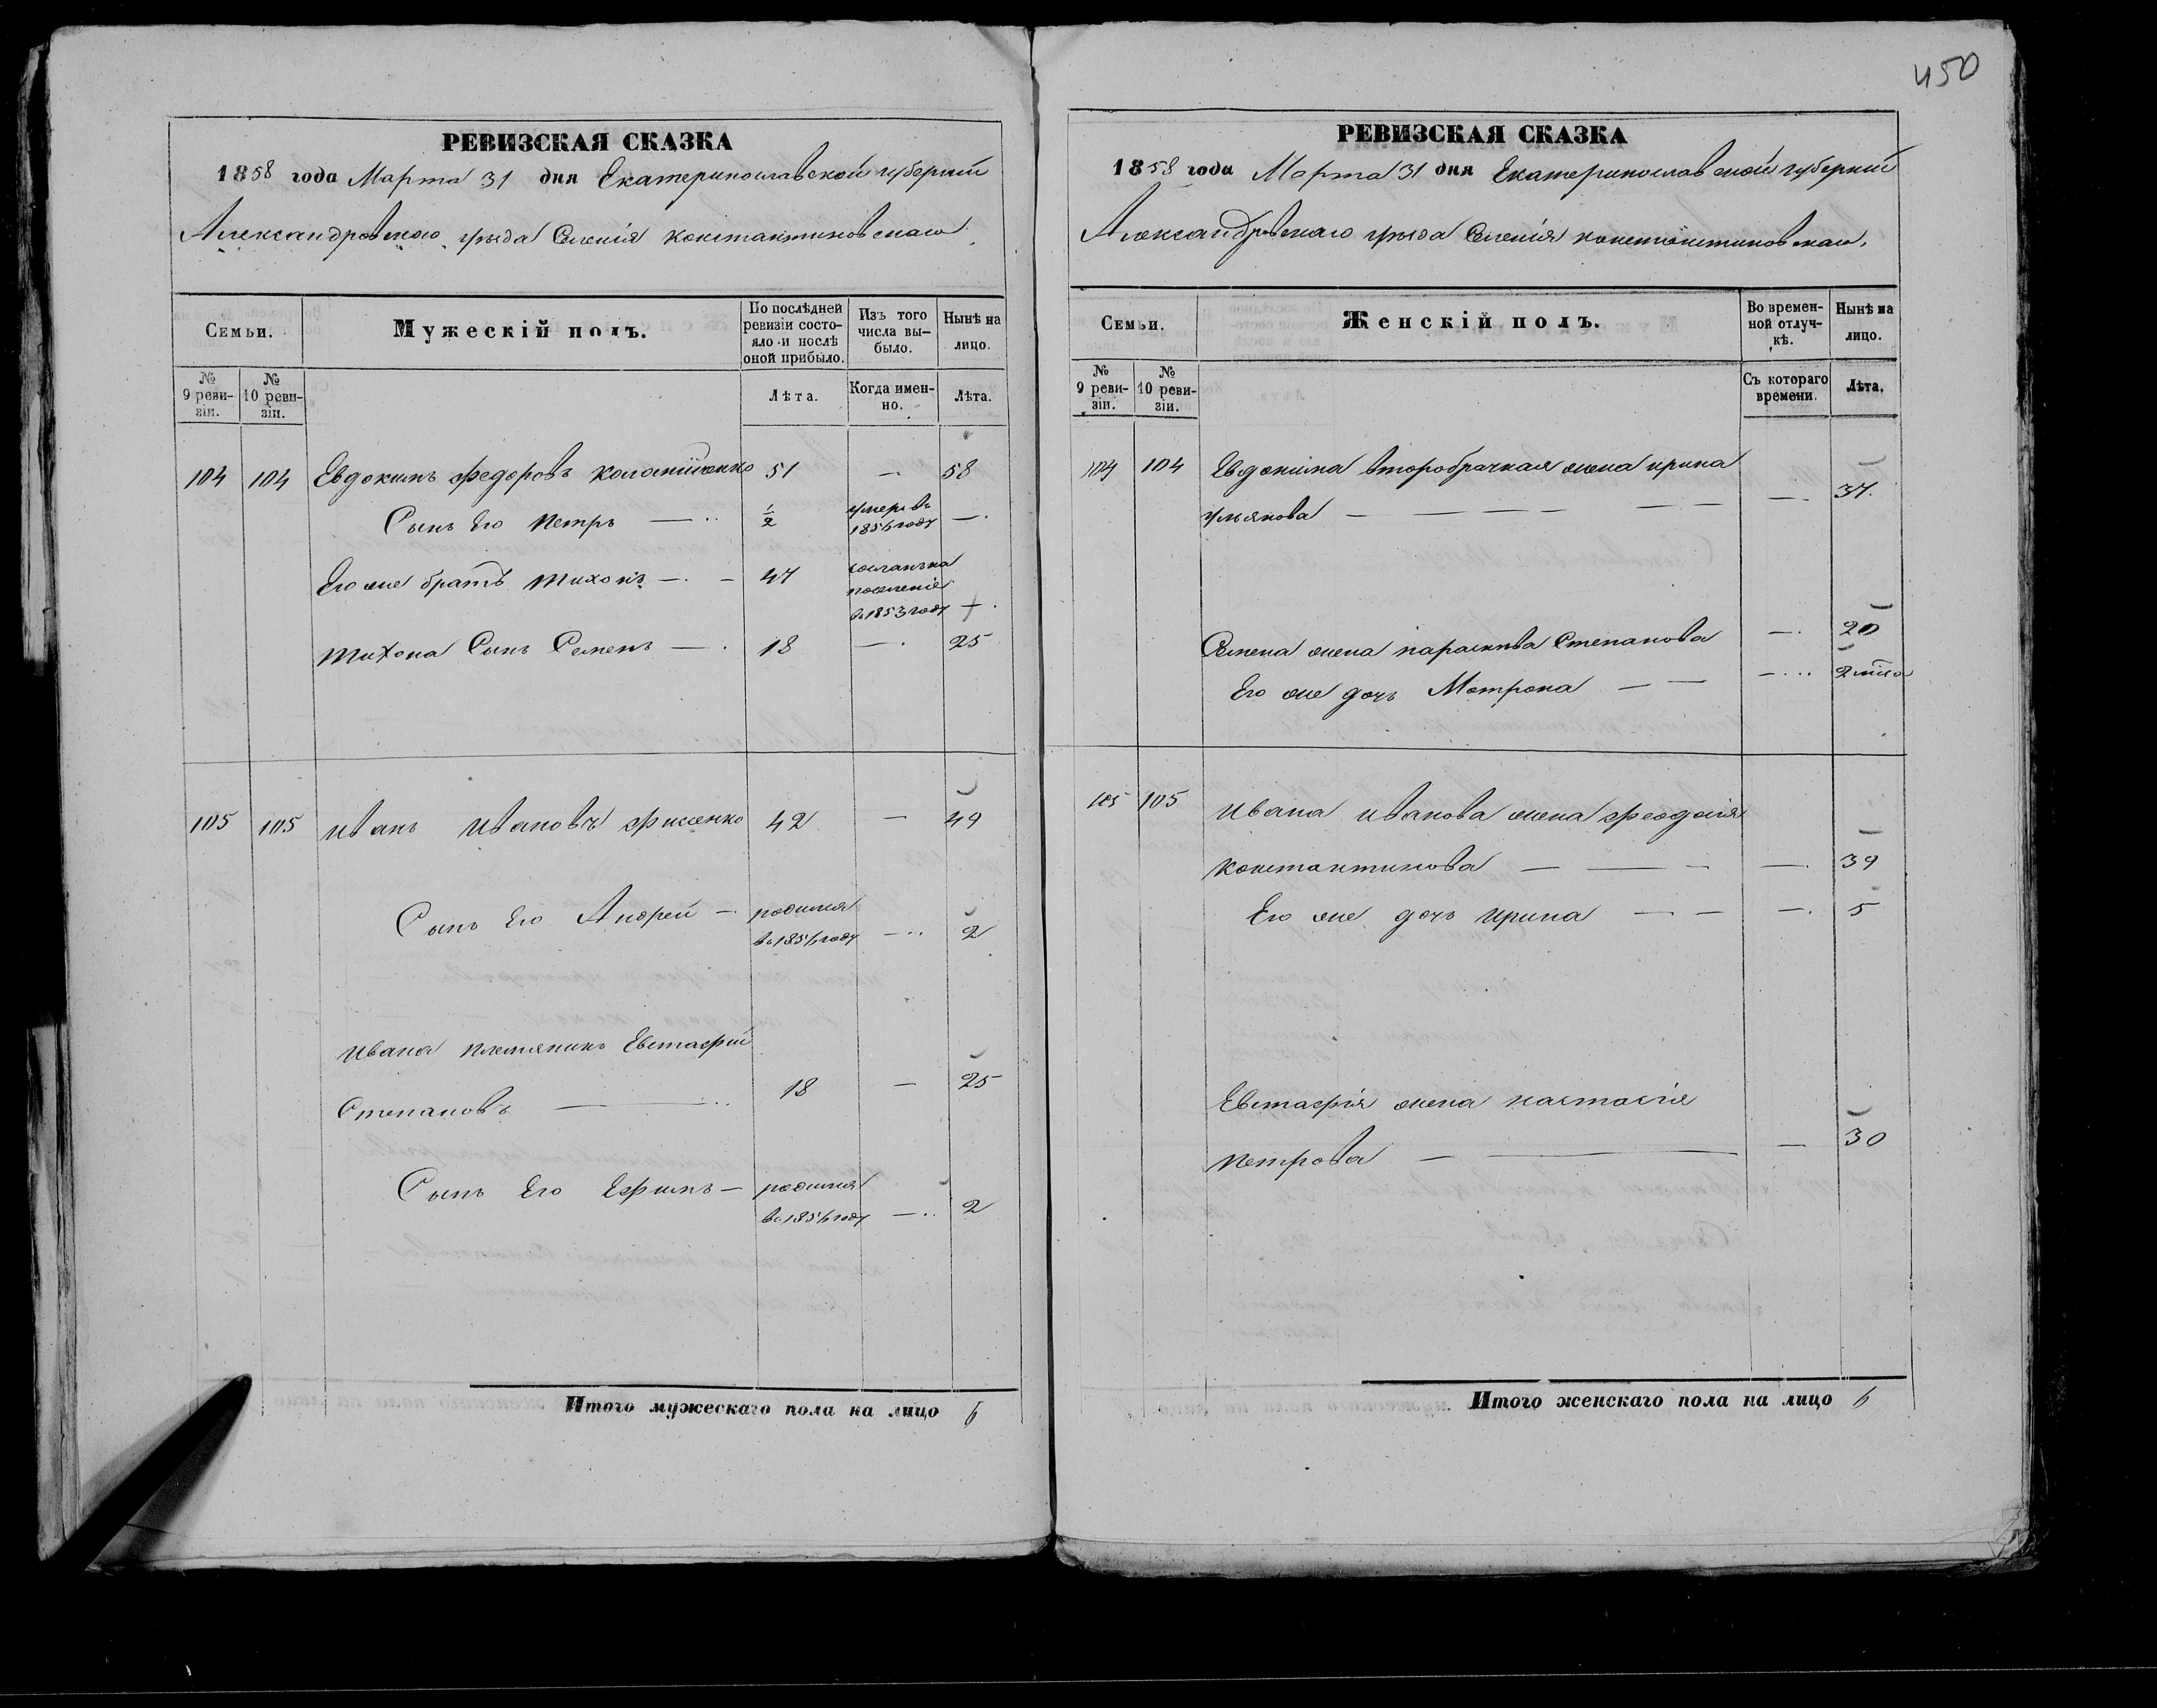 450
РЕВИЗСКАЯ СКАЗКА
1858 года Марта 31 дня Екатеринославской губерніи
Александровского уѣзда Селенія Константиновскаго
Семьи.
Мужескій полъ.
По послѣдней ревизіи состояло и послѣ оной прибыло.
Изъ того числа вы-было.
Нынѣ на лицо.
№ 9 реви-зіи.
№ 10 реви-зіи.
Лѣта.
Когда имен-но.
Лѣта.
104 104 Евдокимъ Федоровъ 51 — 58
Сынъ Его Петръ — ½ умеръ въ 1856 году —
Его же братъ Тихонъ — 47 сосланъ на поселеніе въ 1853 году —
Тихона Сынъ Семенъ — 18 — 25
105 105 Иванъ Ивановъ 42 — 49
Сынъ Его Андрей — родился въ 1856 году — 2
Ивана племяникъ Евстафій
Степановъ — 18 — 25
Сынъ Его Ефимъ — родился въ 1856 году — 2
Итого мужескаго пола на лицо 6
РЕВИЗСКАЯ СКАЗКА
1858 года Марта 31 дня Екатеринославской губерніи
Александровскаго уѣзда Селенія Константиновскаго.
Семьи.
Женскій полъ.
Во времен-ной отлуч-кѣ.
Нынѣ на лицо.
№ 9 реви-зіи.
№ 10 реви-зіи.
Съ котораго времени.
Лѣта.
104 104 Евдокима второбрачная жена Ирина
Ульянова — — 37.
Семена жена Параскева Степанова — 20
Его же дочь Мотрона — —
105 105 Ивана Иванова жена Феодосія
Константинова — — 39
Его же дочь Ирина — — 5
Евстафія жена Настасія
Петрова — — 30
Итого женскаго пола на лицо 6